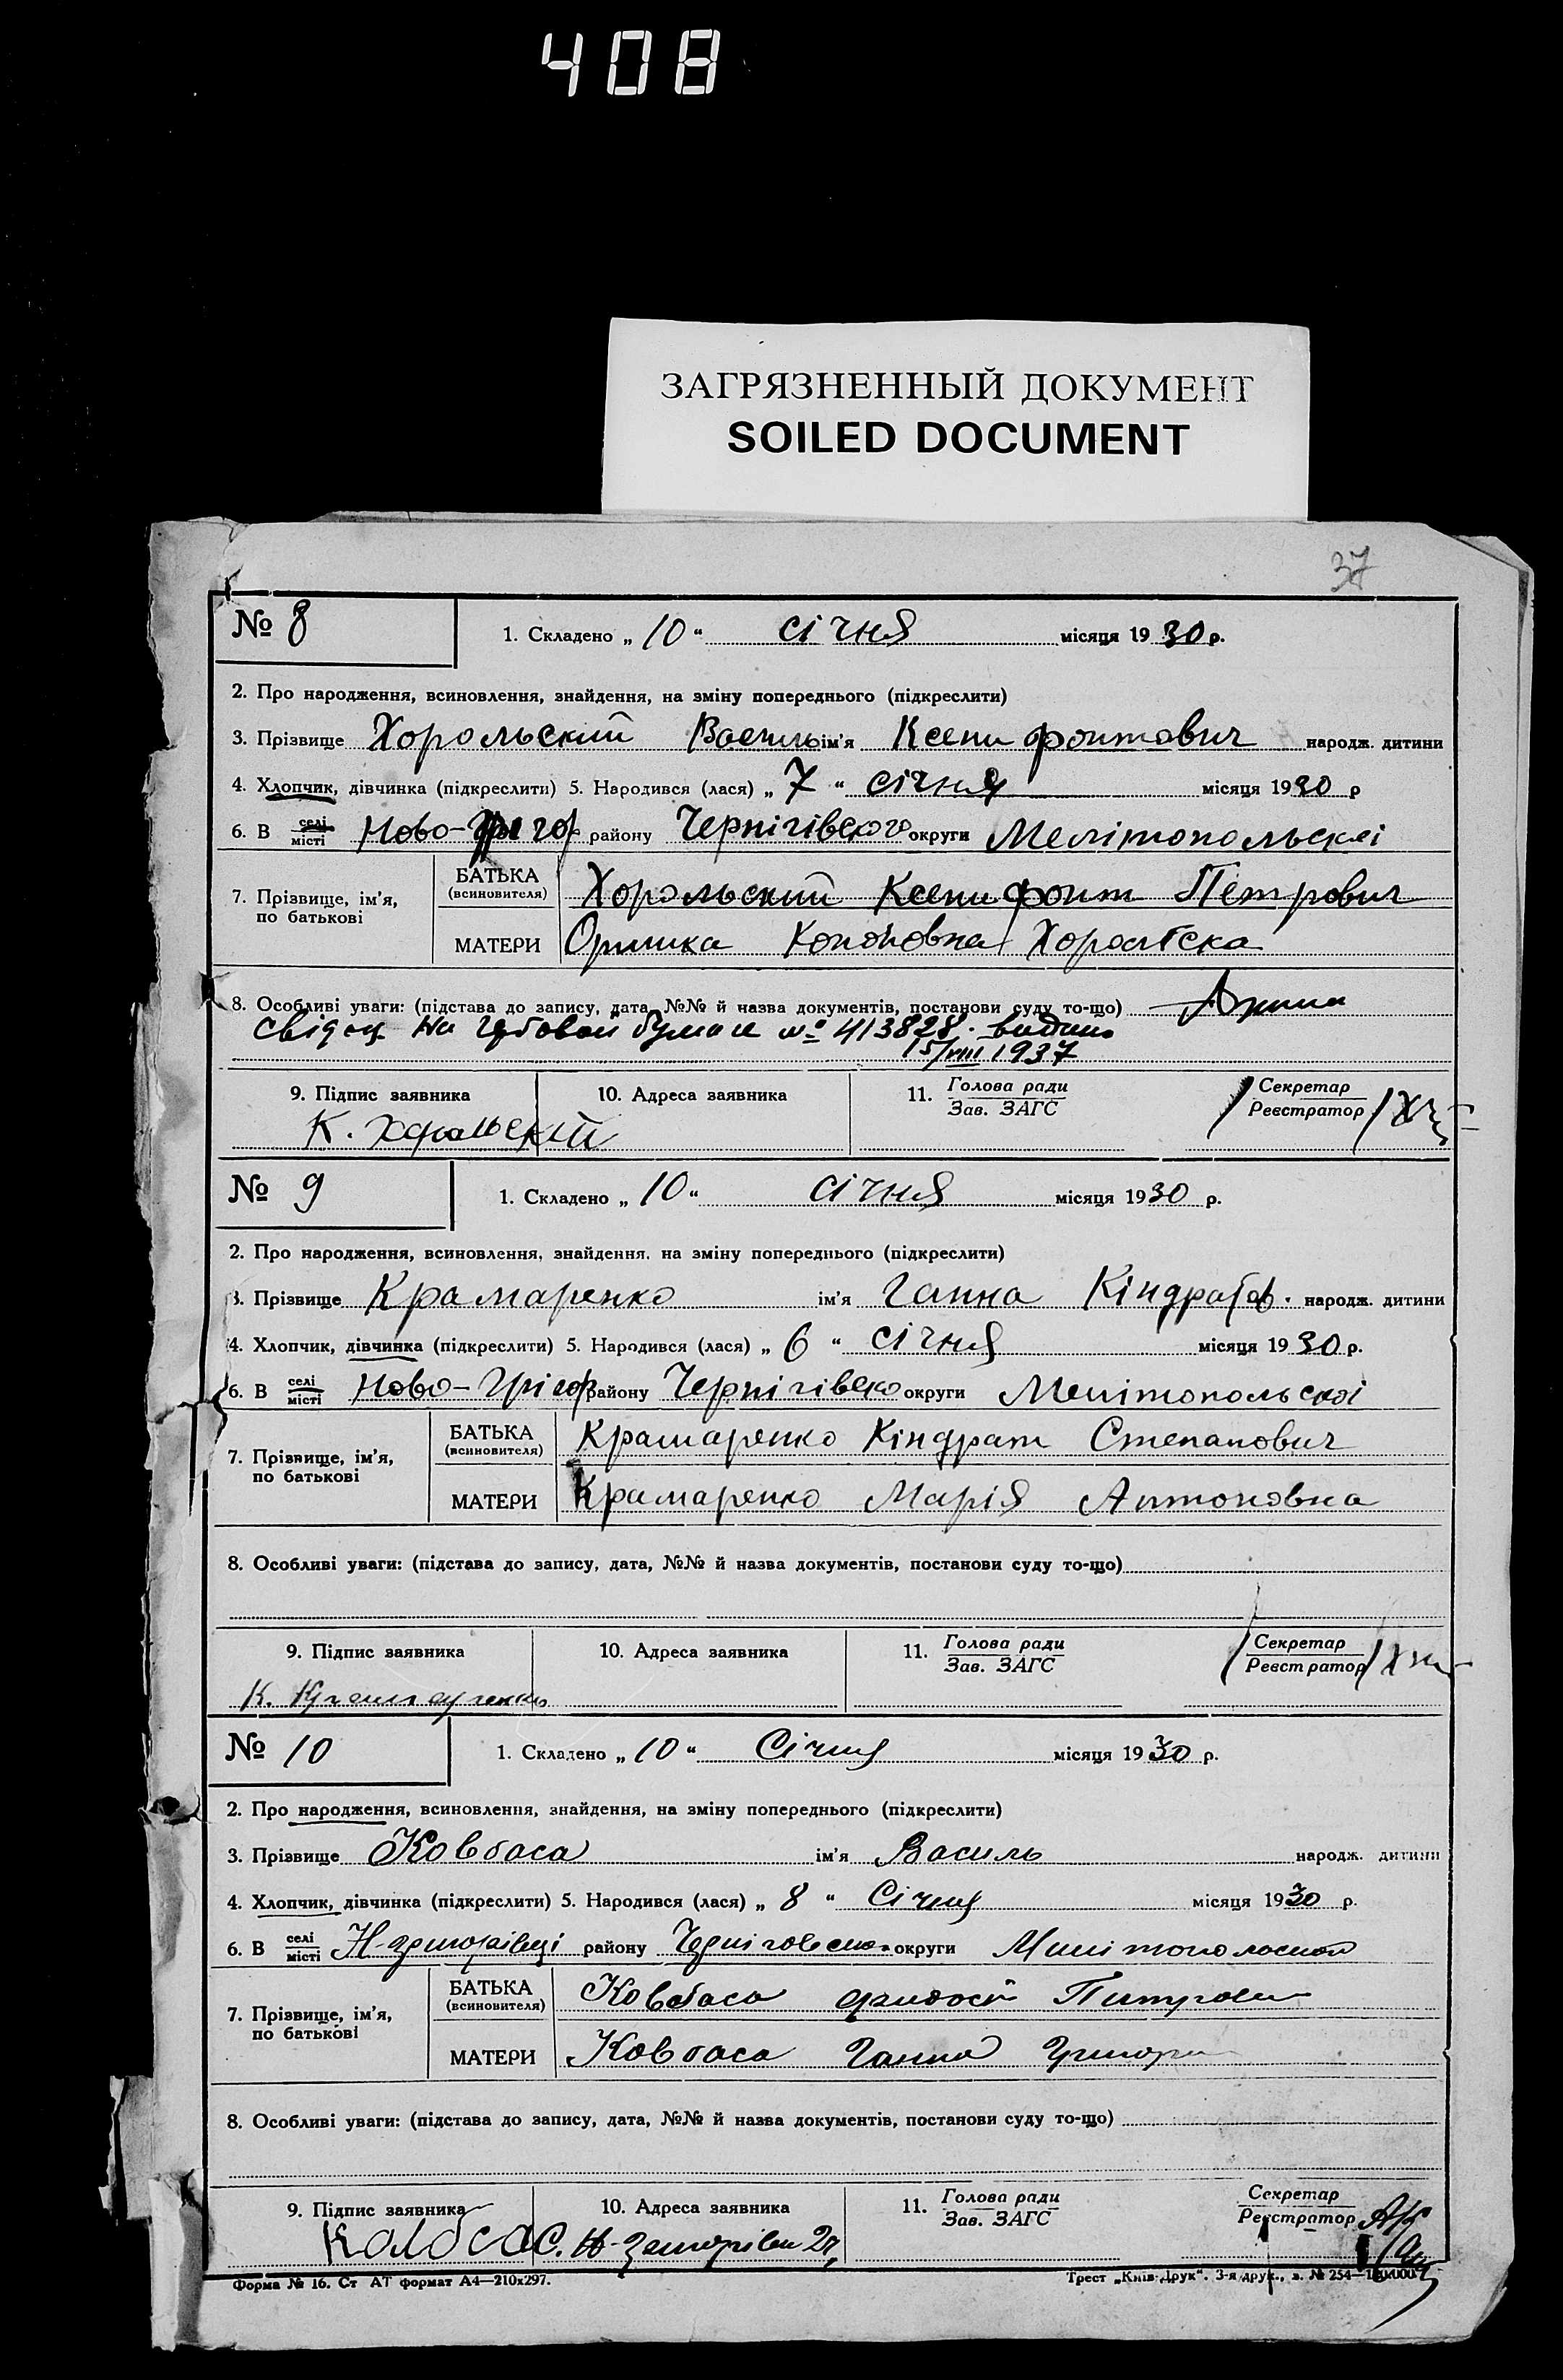 408
ЗАГРЯЗНЕННЫЙ ДОКУМЕНТ
SOILED DOCUMENT
37
№ 8 1. Складено „ 10 “ січня місяця 1930 р.
2. Про народження, всиновлення, знайдення, на зміну попереднього (підкреслити)
3. Прізвище Хорольский Василь ім'я Ксенифонтович народж. дитини
4. Хлопчик, дівчинка (підкреслити) 5. Народився (лася) „ 7 “ січня місяця 1930 р
6. В селі місті Ново-Григор району Чернігівского округи Мелітопольскєі
7. Прізвище, ім'я, по батькові БАТЬКА (всиновителя) Хорольский Ксенифонт Петрович
МАТЕРИ Кононовна Хоролська
8. Особливі уваги: (підстава до запису, дата, №№ й назва документів, постанови суду то-що)
№ 413828. видано
15/VIII 1937
9. Підпис заявника 10. Адреса заявника 11. Голова ради Зав. ЗАГС Секретар Реєстратор
К. Хорольский
№ 9 1. Складено „ 10 “ січня місяця 1930 р.
2. Про народження, всиновлення, знайдення, на зміну попереднього (підкреслити)
3. Прізвище Крамаренко ім'я Ганна Кіндратов. народж. дитини
4. Хлопчик, дівчинка (підкреслити) 5. Народився (лася) „ 6 “ січня місяця 1930 р.
6. В селі місті Ново-Грігор району Чернігівско округи Мелітопольскоі
7. Прізвище, ім'я, по батькові БАТЬКА (всиновителя) Крамаренко Кіндрат Степанович
МАТЕРИ Крамаренко Марія Антоновна
8. Особливі уваги: (підстава до запису, дата, №№ й назва документів, постанови суду то-що)
9. Підпис заявника 10. Адреса заявника 11. Голова ради Зав. ЗАГС Секретар Реєстратор
К. Крамаренко
№ 10 1. Складено „ 10 “ Січня місяця 1930 р.
2. Про народження, всиновлення, знайдення, на зміну попереднього (підкреслити)
3. Прізвище Ковбаса ім'я Василь народж. дитини
4. Хлопчик, дівчинка (підкреслити) 5. Народився (лася) „ 8 “ Січня місяця 1930 р.
6. В селі місті Н-григорівці району округи
7. Прізвище, ім'я, по батькові БАТЬКА (всиновителя) Ковбаса
МАТЕРИ Ковбаса Ганна
8. Особливі уваги: (підстава до запису, дата, №№ й назва документів, постанови суду то-що)
9. Підпис заявника 10. Адреса заявника 11. Голова ради Зав. ЗАГС Секретар Реєстратор
Форма № 16. Ст АТ формат А4—210х297. Трест „Київ-Друк“. 3-я друк., з. № 254